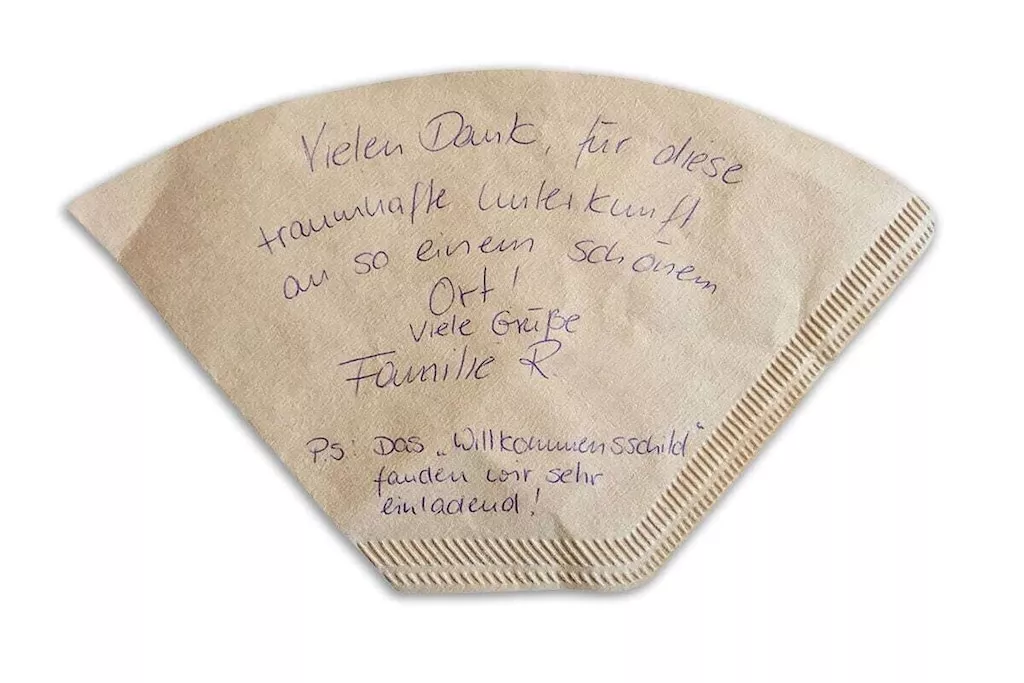 Vielen Dank, für diese
traumhafte Unterkunft
an so einem schönem
Ort!
Viele Grüße
Familie R
P.S: Das „Willkommensschild"
fanden wir sehr
einladend!